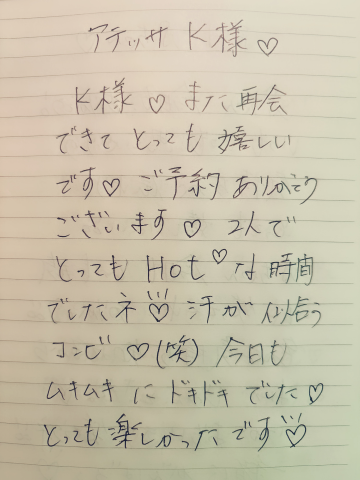 アテッサ K様♡
K様♡ また再会
できて とっても 嬉しい
です♡ ご予約 ありがとう
ございます♡ 2人で
とっても Hot♡な 時間
でしたネ♡ 汗が 似合う
コンビ ♡(笑) 今日も
ムキムキ に ドキドキ でした♡
とっても 楽しかった です♡